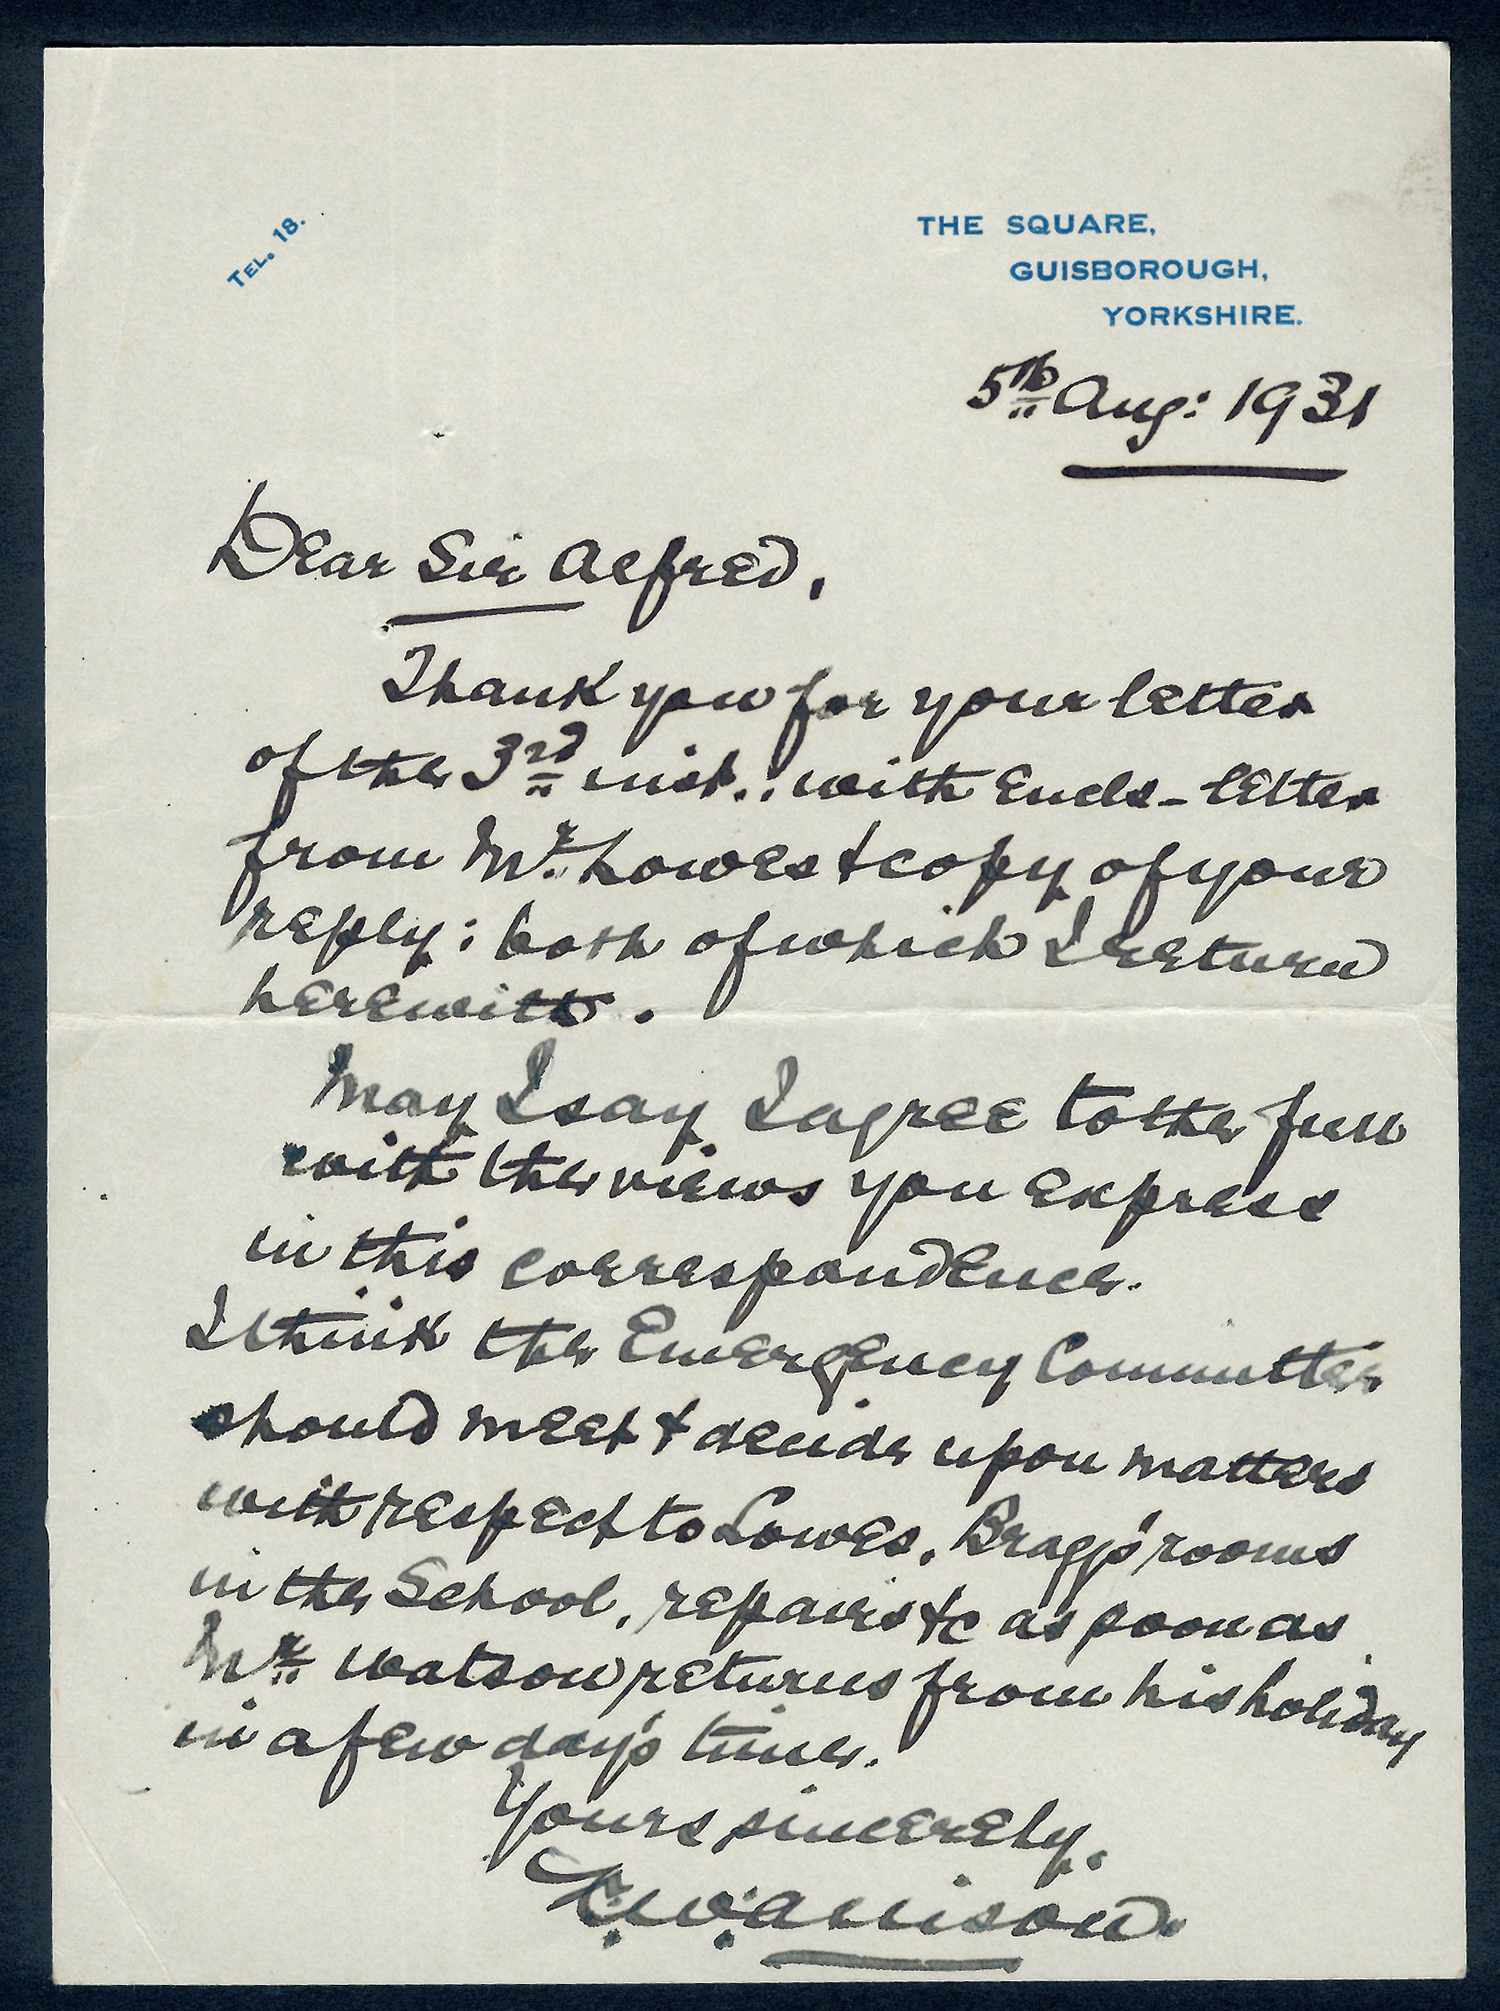 TEL. 18.
THE SQUARE,
GUISBOROUGH,
YORKSHIRE.
5th Aug: 1931
Dear Sir Alfred,
Thank you for your letter
of the 3rd inst.: with encls - letter
from Mr. Lowes & copy of your
reply: both of which I return
herewith.
May I say I agree to the full
with the views you express
in this correspondence.
I think the Emergency Committee
should meet & decide upon matters
with respect to Lowes, Bragg's rooms
in the School, repairs &c as soon as
Mr. Watson returns from his holiday
in a few day's time.
Yours sincerely,
Allison.